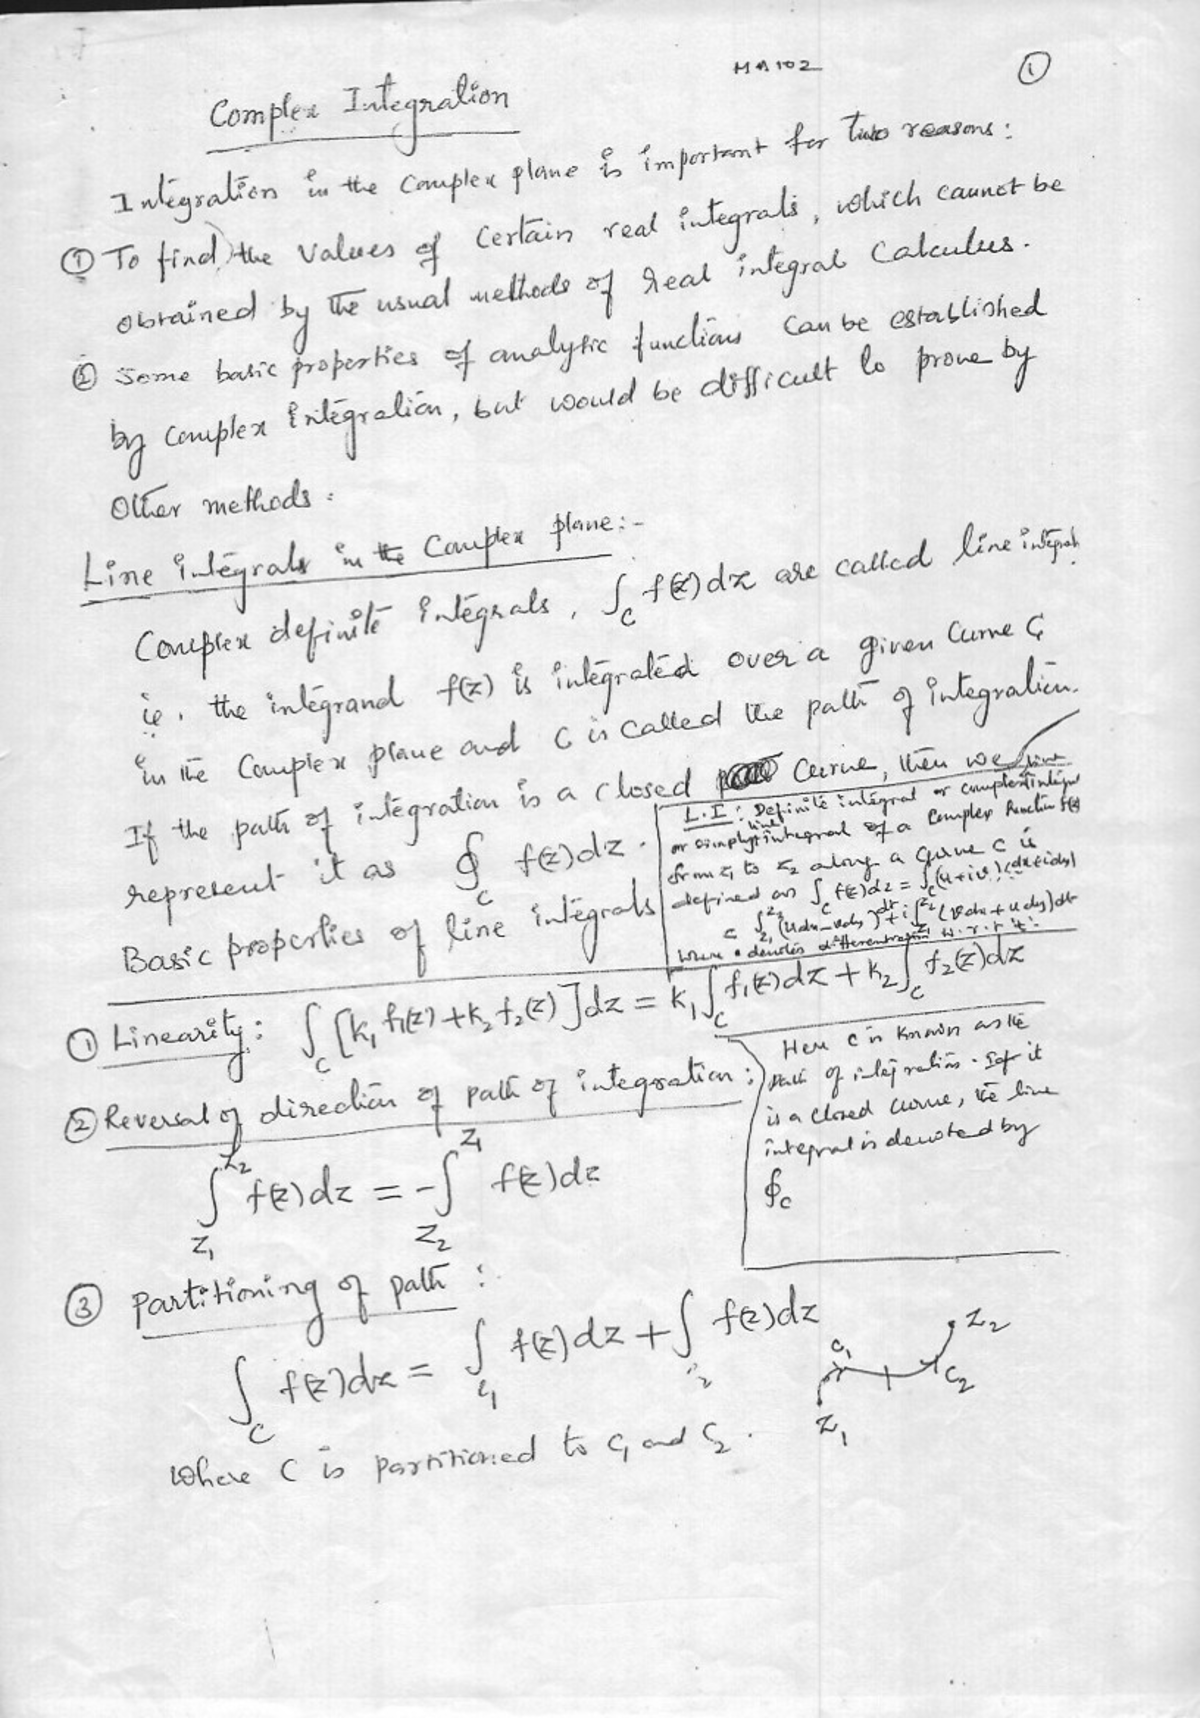 MA102
①
Complex Integration
Integration in the complex plane is important for two reasons:
① To find the values of certain real integrals, which cannot be
obtained by the usual methods of real integral calculus.
② Some basic properties of analytic functions can be established
by complex integration, but would be difficult to prove by
other methods.
Line integrals in the complex plane:-
Complex definite integrals, ∫_C f(z)dz are called line integrals
ie. the integrand f(z) is integrated over a given curve C,
in the complex plane and C is called the path of integration.
If the path of integration is a closed curve, then we
represent it as ∮_C f(z)dz.
L.I: Definite integral or complex line integral
or simply line integral of a complex function f(z)
from z₁ to z₂ along a curve C is
defined as ∫_C f(z)dz = ∫_C (u+iv)(dx+idy)
= ∫_{z₁}^{z₂} (udx-vdy)dt + i∫_{z₁}^{z₂} (vdx+udy)dt
where • denotes differentiation w.r.t t.
Basic properties of line integrals
① Linearity: ∫_C [k₁f₁(z)+k₂f₂(z)]dz = k₁∫_C f₁(z)dz + k₂∫_C f₂(z)dz
② Reversal of direction of path of integration:
∫_{z₁}^{z₂} f(z)dz = -∫_{z₂}^{z₁} f(z)dz
Here C is known as the
path of integration. If it
is a closed curve, the line
integral is denoted by
∮_C
③ Partitioning of path:
∫_C f(z)dz = ∫_{C₁} f(z)dz + ∫_{C₂} f(z)dz
C₁ z₂
C₂
z₁
where C is partitioned to C₁ and C₂.